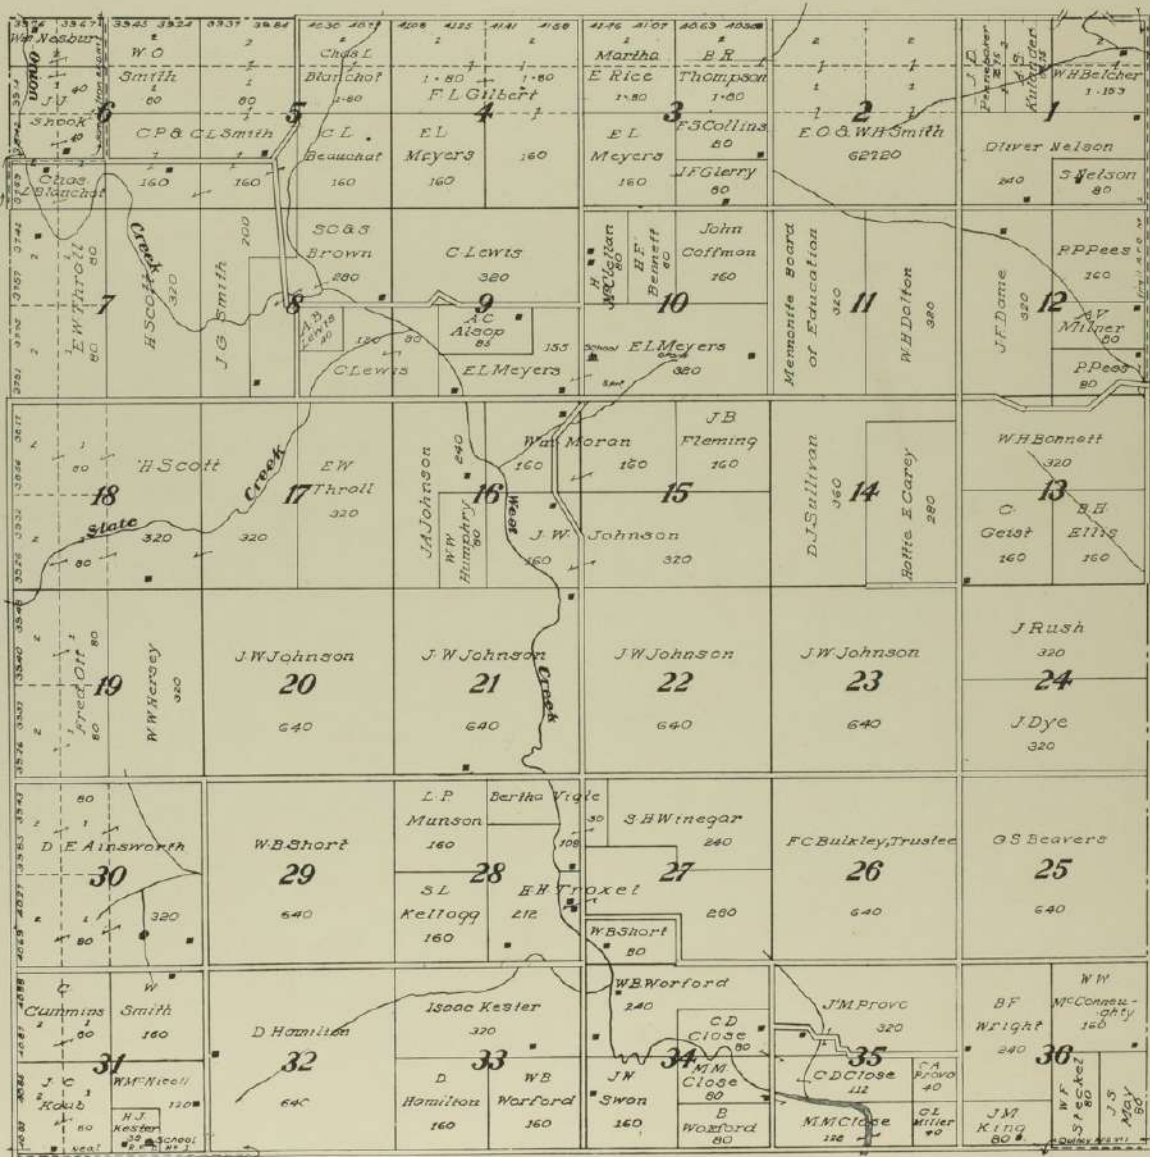 3945 3924 3937 3984 4030 4158 4146
Wm Nesbur
W.O
Smith
80
80
Chas L
Blanchat
1-80
1-80
1-80
F L Gilbert
Martha
E Rice
1-80
B R
Thompson
1-80
J D
Pennebaker
Kulander
W H Belcher
1-153
Union
40
J J
Shook
40
6
5
4
3
2
1
C P & C L Smith
160
160
C L
Beauchat
160
E L
Meyers
160
160
E L
Meyers
160
F S Collins
80
J F Glerry
80
E O & W H Smith
62720
Oliver Nelson
240
S Nelson
80
Chas
L Blanchat
E W Throll
80
80
7
Creek
H Scott
320
J G Smith
200
S C & S
Brown
280
8
A B
Lewis
40
120
80
C Lewis
C Lewis
320
9
A C
Alsop
85
155
E L Meyers
H
McClellan
80
H F
Bennett
80
John
Coffman
160
10
School
E L Meyers
320
Mennonite Board
of Education
320
11
W H Dolton
320
J F Dame
320
12
P P Pees
160
A V
Milner
80
P Pees
80
80
18
State
80
H Scott
320
Creek
17
320
E W
Throll
320
J A Johnson
240
16
W W
Humphry
80
West
Wm Moran
160
160
J B
Fleming
160
15
J W Johnson
160
320
D J Sullivan
360
14
Hattie E Carey
280
W H Bonnett
320
13
C
Geist
160
B H
Ellis
160
80
Fred Ott
80
19
W W Hersey
320
J W Johnson
20
640
J W Johnson
21
640
Creek
J W Johnson
22
640
J W Johnson
23
640
J Rush
320
24
J Dye
320
80
D E Ainsworth
30
320
80
W B Short
29
640
L P
Munson
160
Bertha Vigle
108
28
S L
Kellogg
160
H H Troxel
212
30
S H Winegar
240
27
280
W B Short
80
F C Bulkley, Trustee
26
640
G S Beavers
25
640
C W
Cummins Smith
80
160
31
J C
Koub
80
W McNicoll
120
H J
Kester
School
Neal
D Hamilton
32
640
Isaac Kester
320
33
D
Hamilton
160
W B
Worford
160
W B Worford
240
C D
Close
80
34
J W
Swan
160
M M
Close
80
B
Worford
80
J M Provo
320
35
C D Close
112
C A
Provo
40
M M Close
128
C L
Miller
40
B F
Wright
240
W W
McConneughty
160
36
J M
King
80
W F
Steckel
80
J S
May
80